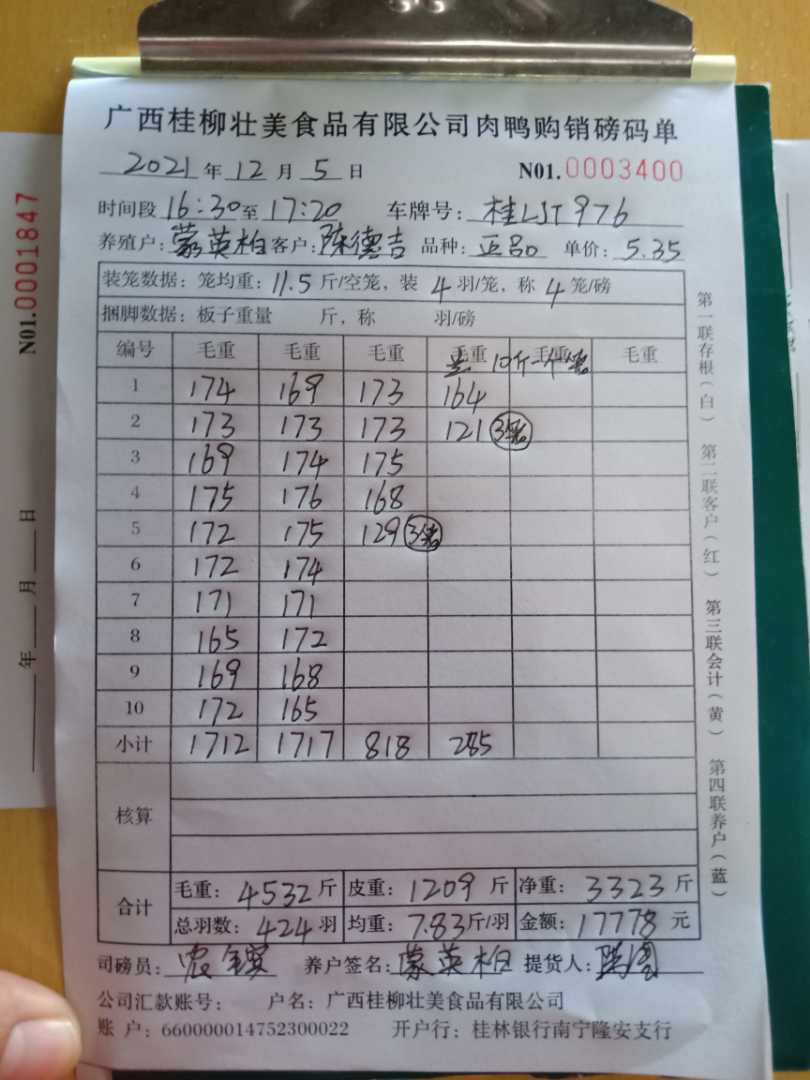 广西桂柳壮美食品有限公司肉鸭购销磅码单
2021年12月5日 N01.0003400
时间段16:30至17:20 车牌号:桂LJT976
养殖户:蒙英柏 客户:陈德吉 品种:正品 单价:5.35
装笼数据:笼均重:11.5斤/空笼,装4羽/笼,称4笼/磅
捆脚数据:板子重量 斤,称 羽/磅
编号 毛重 毛重 毛重 毛重 毛重 毛重
10斤一个
1 174 169 173 164
2 173 173 173 121 3笼
3 169 174 175
4 175 176 168
5 172 175 129 3笼
6 172 174
7 171 171
8 165 172
9 169 168
10 172 165
小计 1712 1717 818 285
核算
合计 毛重:4532斤 皮重:1209斤 净重:3323斤
总羽数:424羽 均重:7.83斤/羽 金额:17778元
司磅员: 养户签名:蒙英柏 提货人:
公司汇款账号: 户名:广西桂柳壮美食品有限公司
账 户:660000014752300022 开户行:桂林银行南宁隆安支行
第一联存根(白) 第二联客户(红) 第三联会计(黄) 第四联养户(蓝)
N01.0001847
年 月 日